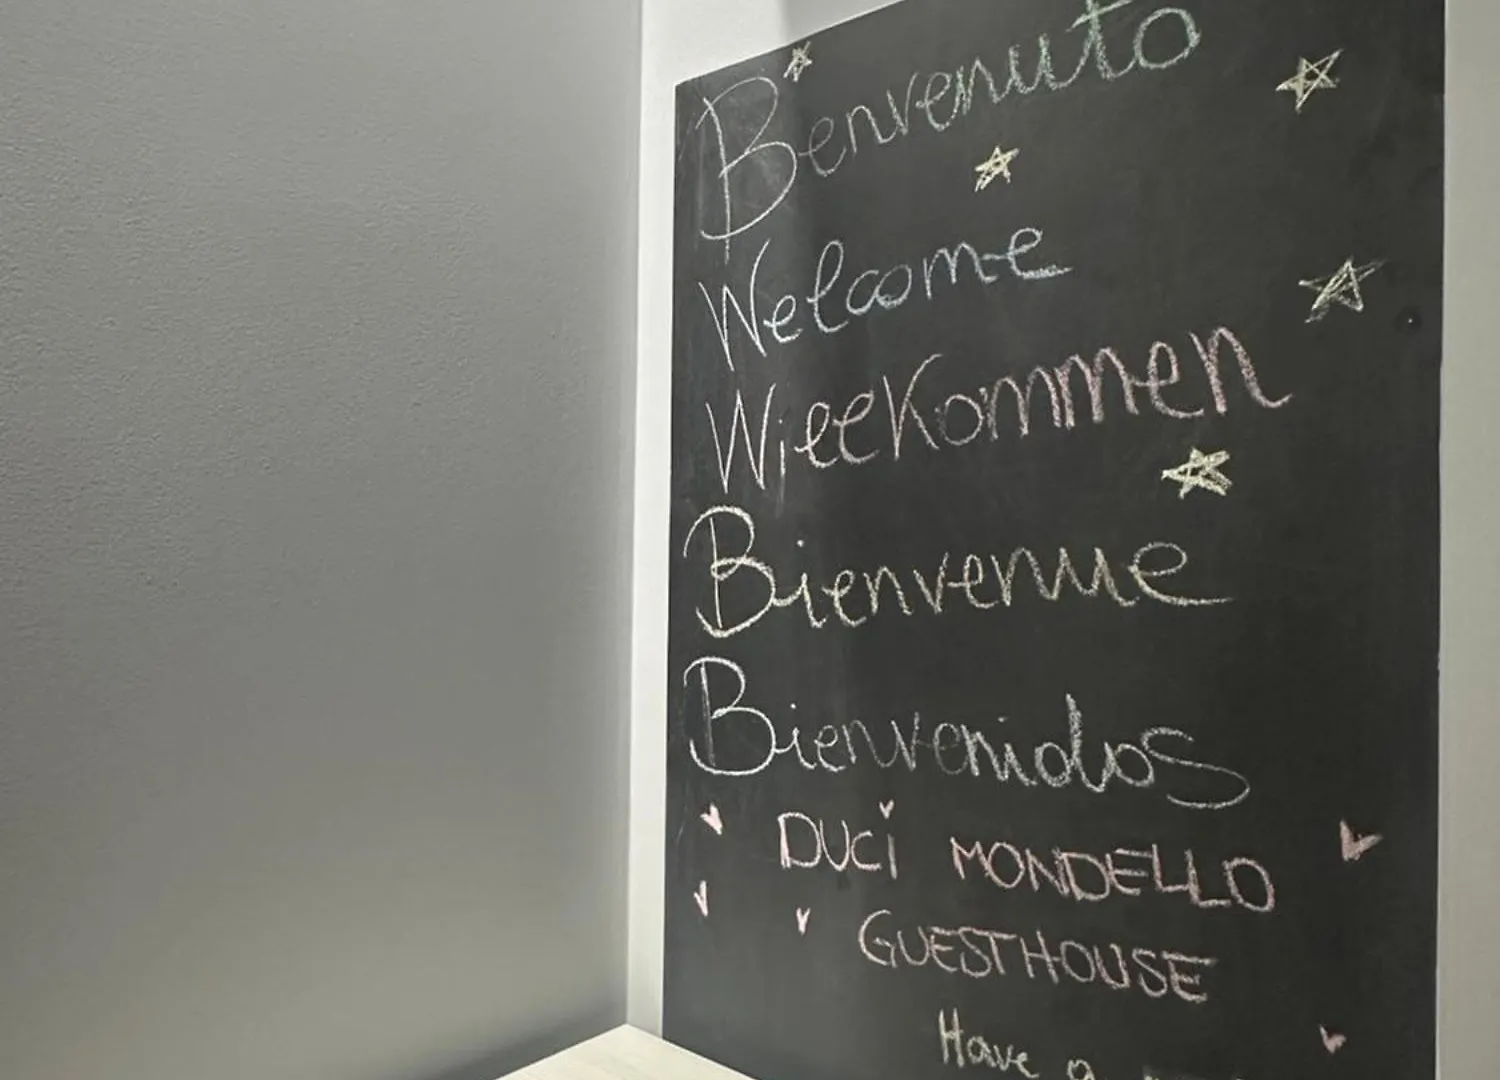 Benvenuto
Welcome
Willkommen
Bienvenue
Bienvenidos
DUCI MONDELLO
GUESTHOUSE
Have a